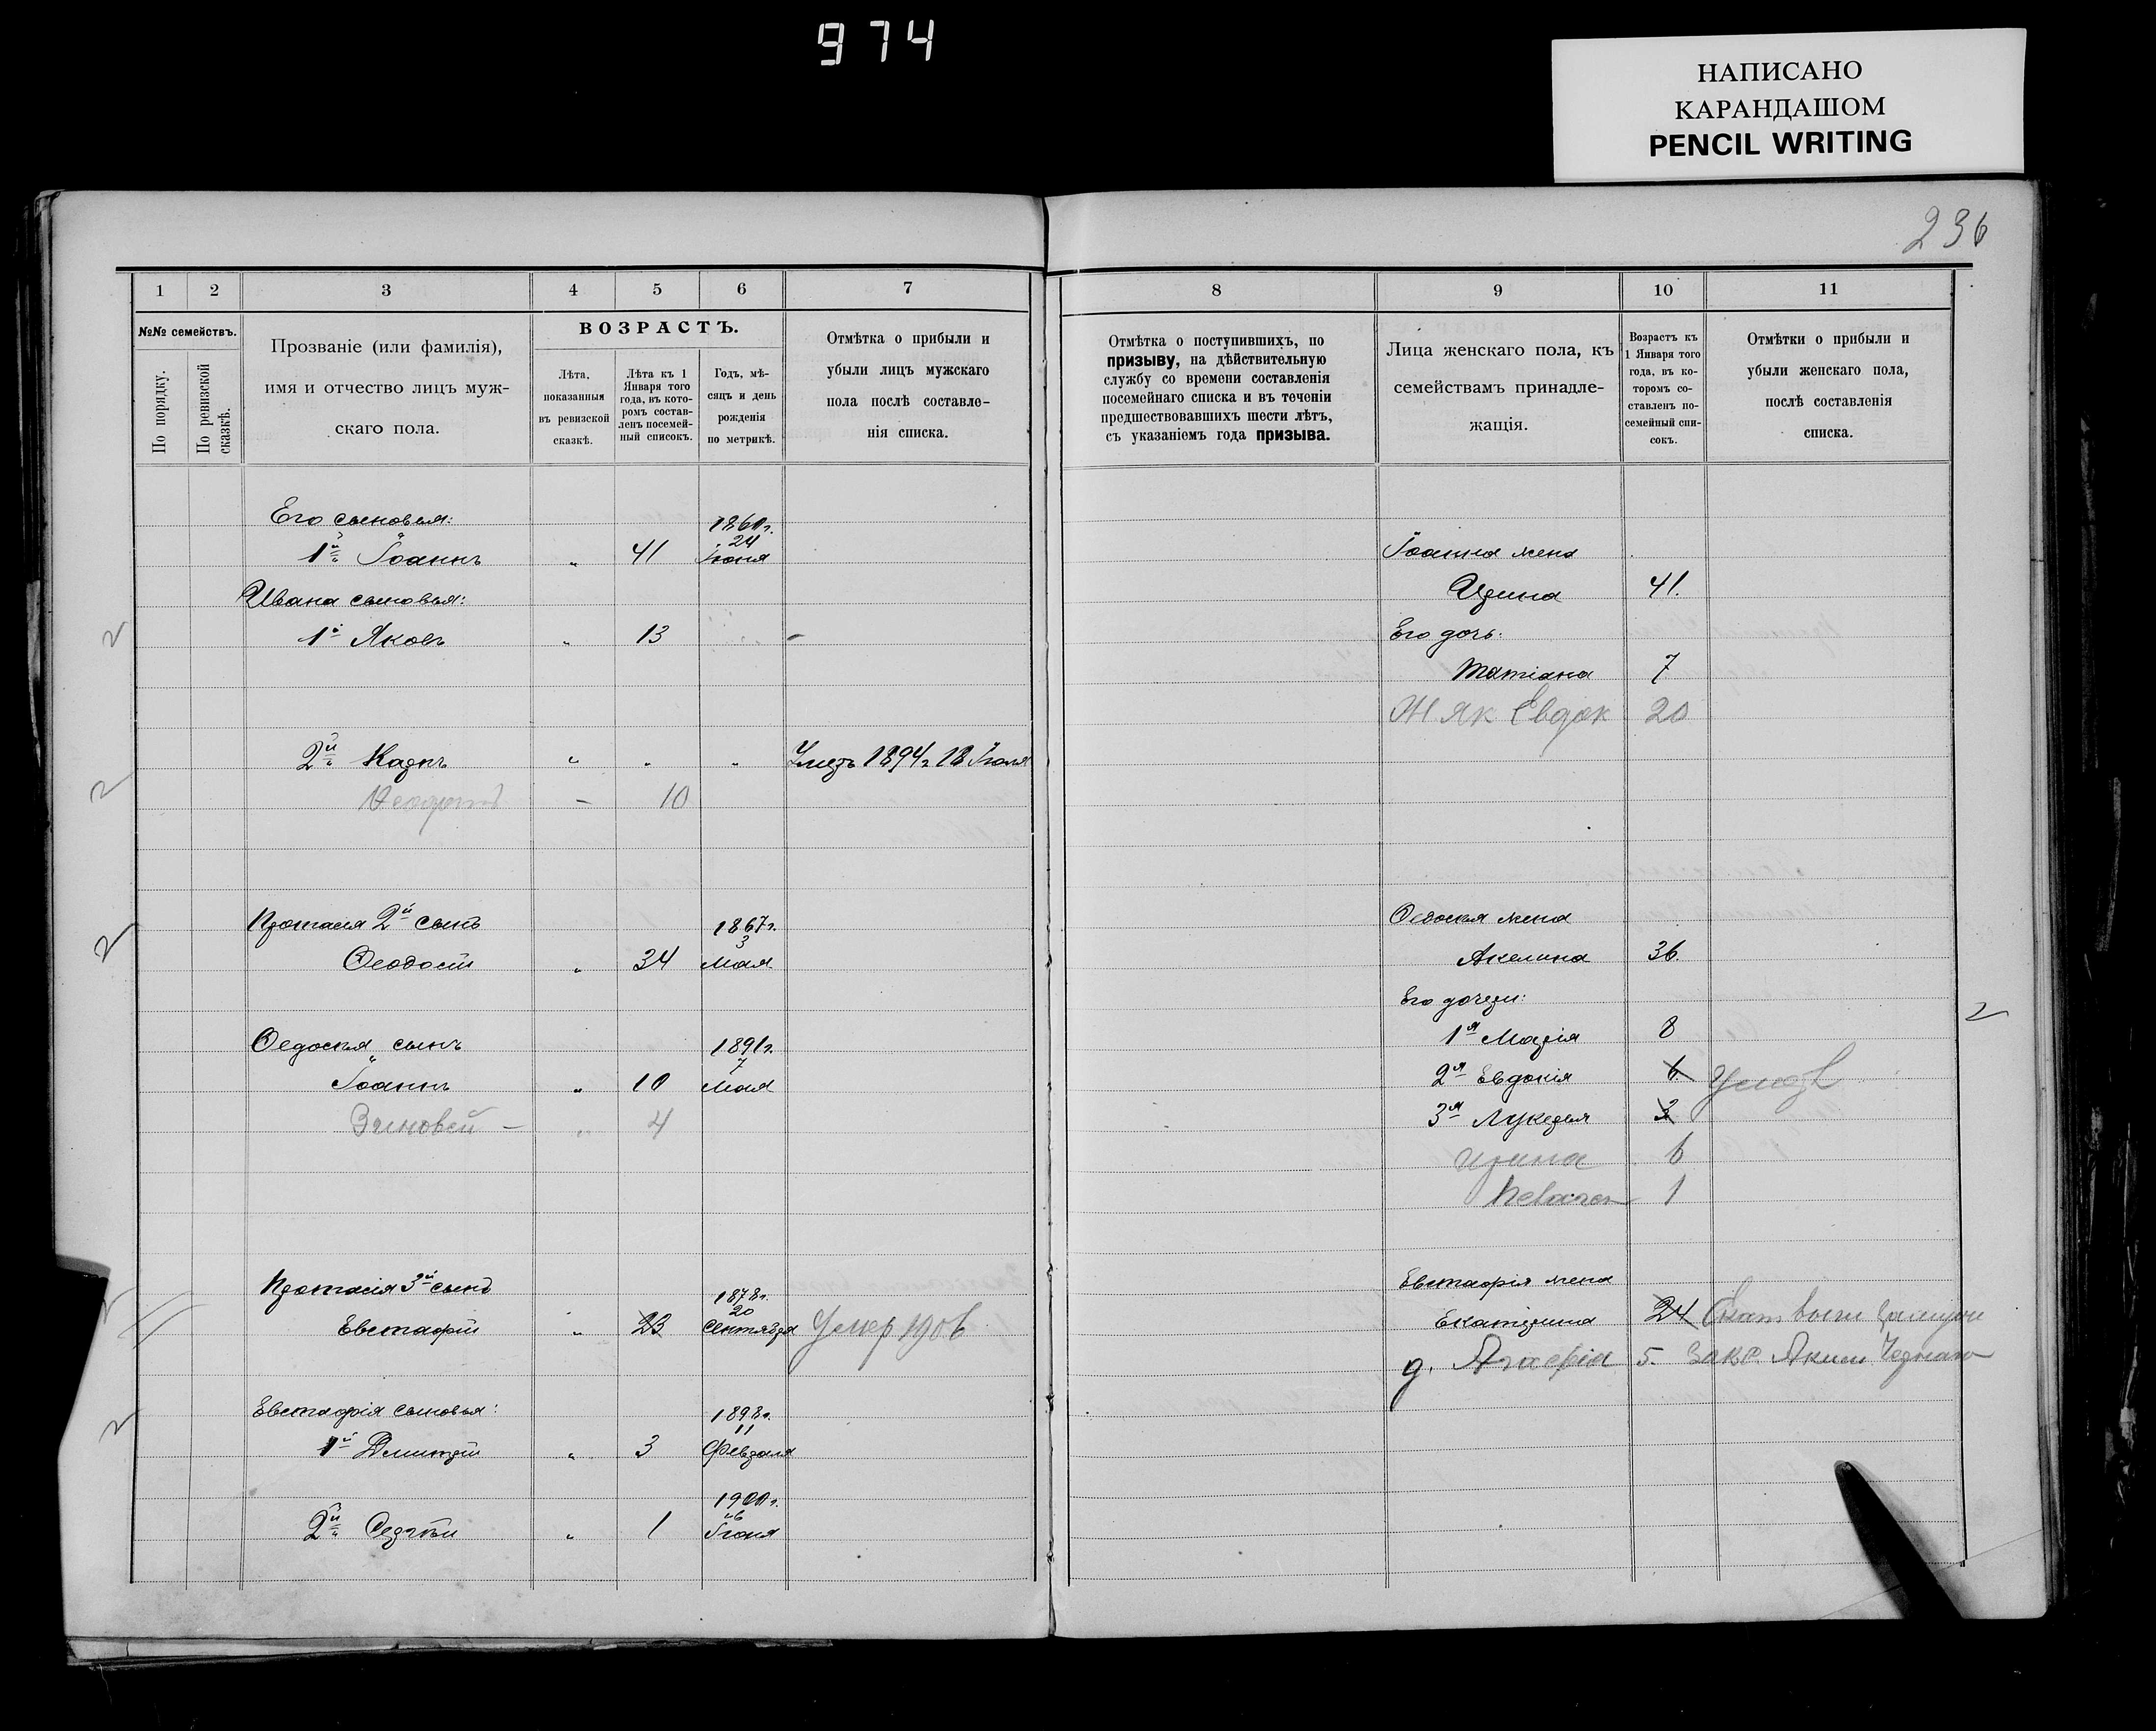 974
НАПИСАНО
КАРАНДАШОМ
PENCIL WRITING
236
1 2 3 4 5 6 7
№№ семействъ.
По порядку.
По ревизской сказкѣ.
Прозваніе (или фамилія),
имя и отчество лицъ муж-
скаго пола.
ВОЗРАСТЪ.
Лѣта,
показанныя
въ ревизской
сказкѣ.
Лѣта къ 1
Января того
года, въ кото-
ромъ состав-
ленъ посемей-
ный списокъ.
Годъ, мѣ-
сяцъ и день
рожденія
по метрикѣ.
Отмѣтка о прибыли и
убыли лицъ мужскаго
пола послѣ составле-
нія списка.
Его сыновья:
1860 г.
24
1й Іоаннъ " 41 Іюня
Ивана сыновья:
2
1й Яковъ " 13 -
2й Карпъ " " " Умеръ 1894 г 18 Іюля
2
— 10
Протасія 2й сынъ 1867 г.
2
3
Ѳеодосій " 34 Мая
Ѳедосѣя сынъ 1891 г.
7
Іоаннъ " 10 Мая
Зиновей — " 4
Протасія 3й сынъ 1878 г.
20
Евстафій " 23 Сентября Умер 1906
Евстафія сыновья: 1898 г.
2
11
1й Дмитрій " 3 Февраля
1900 г.
2й Сергѣй " 1 Іюня
8 9 10 11
Отмѣтка о поступившихъ, по
призыву, на дѣйствительную
службу со времени составленія
посемейнаго списка и въ теченіи
предшествовавшихъ шести лѣтъ,
съ указаніемъ года призыва.
Лица женскаго пола, къ
семействамъ принадле-
жащія.
Возрастъ къ
1 Января того
года, въ ко-
торомъ со-
ставленъ по-
семейный спи-
сокъ.
Отмѣтки о прибыли и
убыли женскаго пола,
послѣ составленія
списка.
Іоанна жена
Ирина 41.
Его дочь:
Татіана 7
Ж Як Евдок 20
Ѳедосѣя жена
Акелина 36.
Его дочери:
2
1я Марія 8
2я Евдокія 6 Умерл
3я Лукерья 3
Ирина 6
Пелагея 1
Евстафія жена
Екатерина 24
д. Агафія 5.